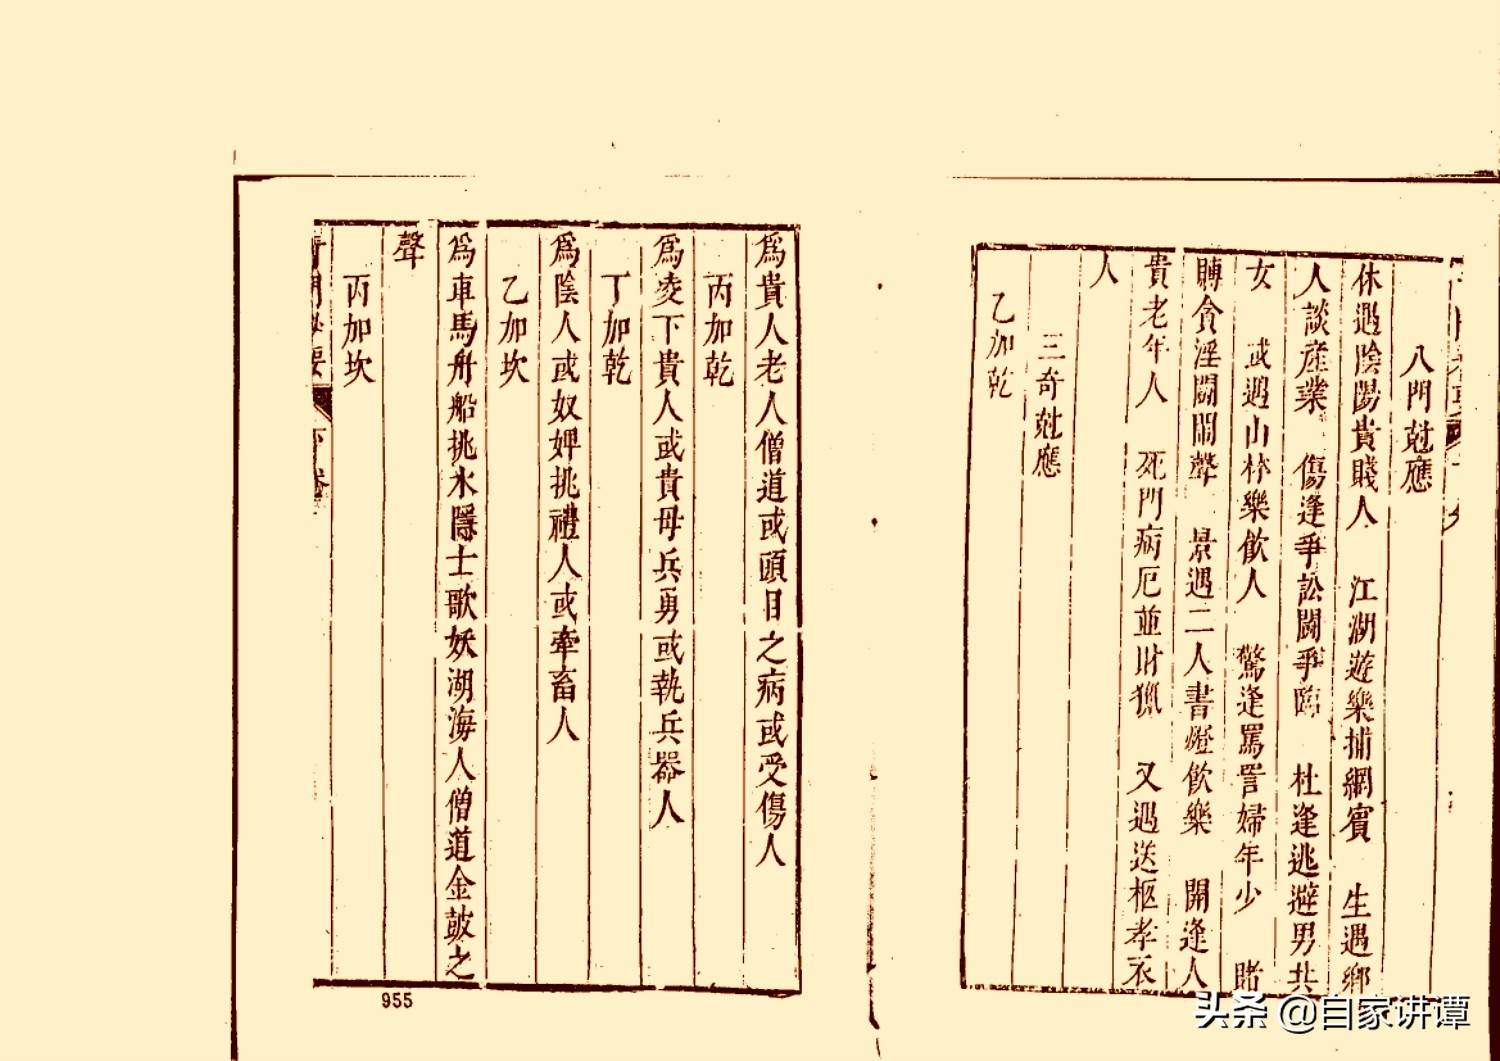 八門尅應
休遇陰陽貴賤人　江湖遊樂捕網賓　生遇鄉
人談産業　傷逢爭訟鬪爭臨　杜逢逃避男共
女　或遇山林樂飲人　驚逢罵詈婦年少　賭
賻貪淫鬪鬧聲　景遇二人書燈飲樂　開逢人
貴老年人　死門病厄並財獵　又遇送柩孝衣
人
三奇尅應
乙加乾
爲貴人老人僧道或頭目之病或受傷人
丙加乾
爲凌下貴人或貴母兵勇或執兵器人
丁加乾
爲陰人或奴婢挑禮人或牽畜人
乙加坎
爲車馬舟船挑水隱士歌妖湖海人僧道金鼓之
聲
丙加坎
下卷
955
头条 @自家讲谭